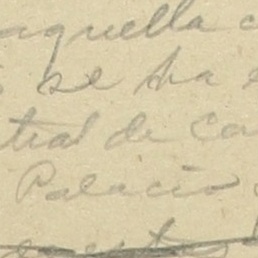 aquella c
se ha e
tral de Ca
Palacio